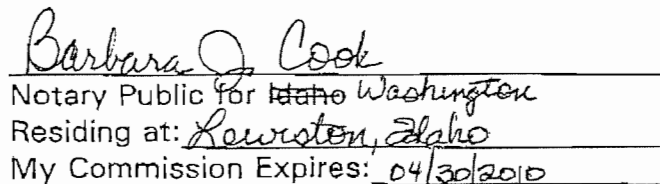 Barbara J Cook
Notary Public for Idaho Washington
Residing at: Lewiston, Idaho
My Commission Expires: 04/30/2010